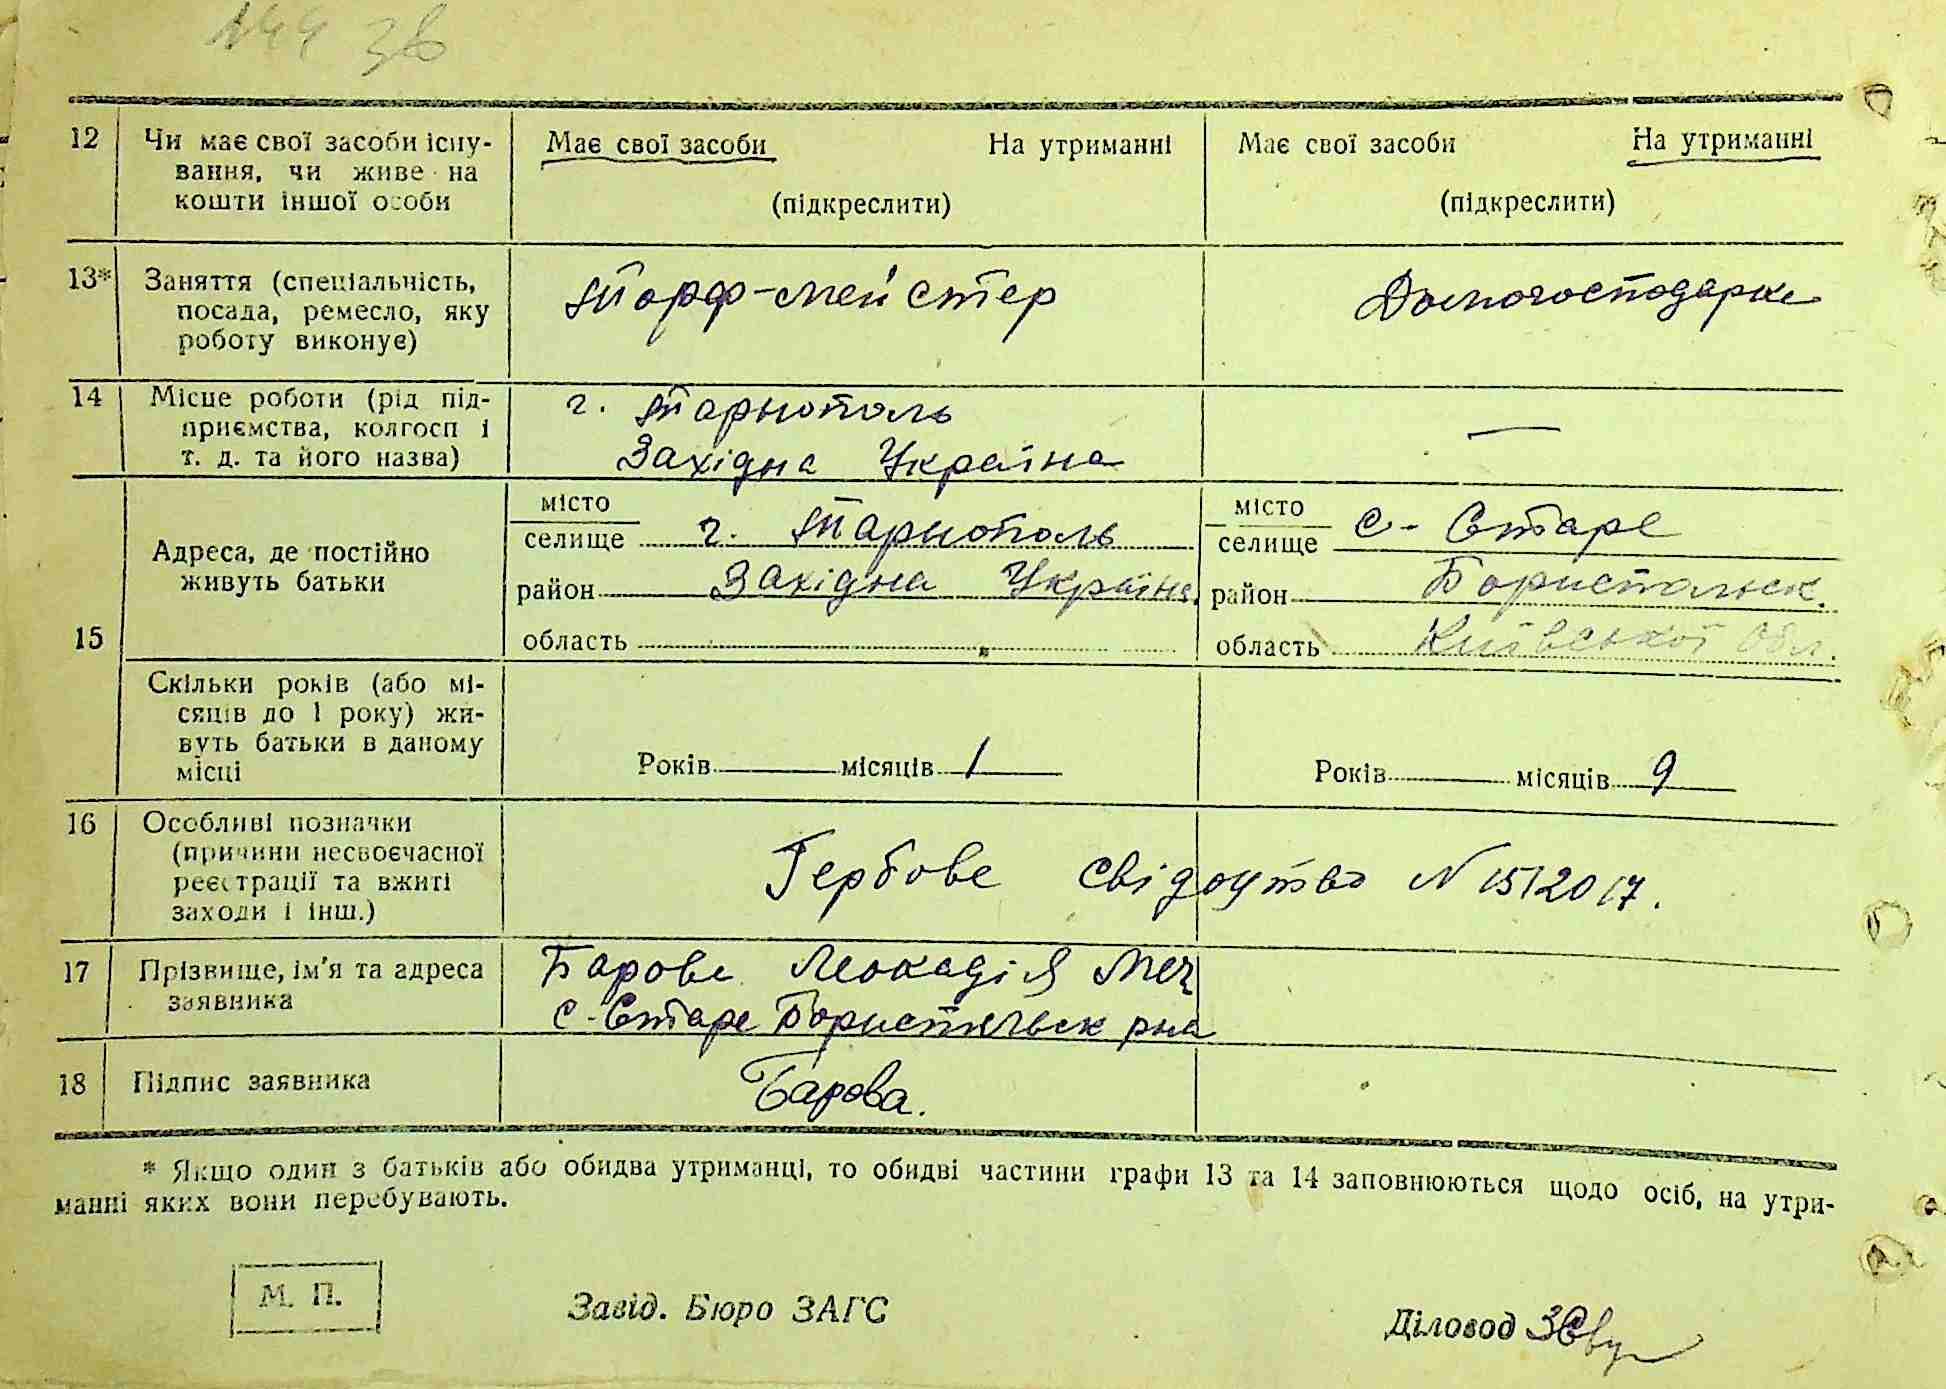 144 зв
12 Чи має свої засоби існу- Має свої засоби На утриманні Має свої засоби На утриманні
вання, чи живе на
кошти іншої особи (підкреслити) (підкреслити)
13* Заняття (спеціальність, Торф-мейстер Домогосподарка
посада, ремесло, яку
роботу виконує)
14 Місце роботи (рід під- г. Тарнополь —
приємства, колгосп і
т. д. та його назва) Західна Україна
місто місто
Адреса, де постійно селище г. Тарнополь селище с. Старе
живуть батьки район Західна Україна район Бориспольск.
15 область область Київської обл.
Скільки років (або мі-
сяців до 1 року) жи-
вуть батьки в даному
місці Років місяців 1 Років місяців 9
16 Особливі позначки
(причини несвоєчасної Гербове свідоцтво N 1512017.
реєстрації та вжиті
заходи і інш.)
17 Прізвище, ім'я та адреса Барова Леокадія Меч
заявника с. Старе рна
18 Підпис заявника Барова.
* Якщо один з батьків або обидва утриманці, то обидві частини графи 13 та 14 заповнюються щодо осіб, на утри-
манні яких вони перебувають.
М. П. Завід. Бюро ЗАГС Діловод